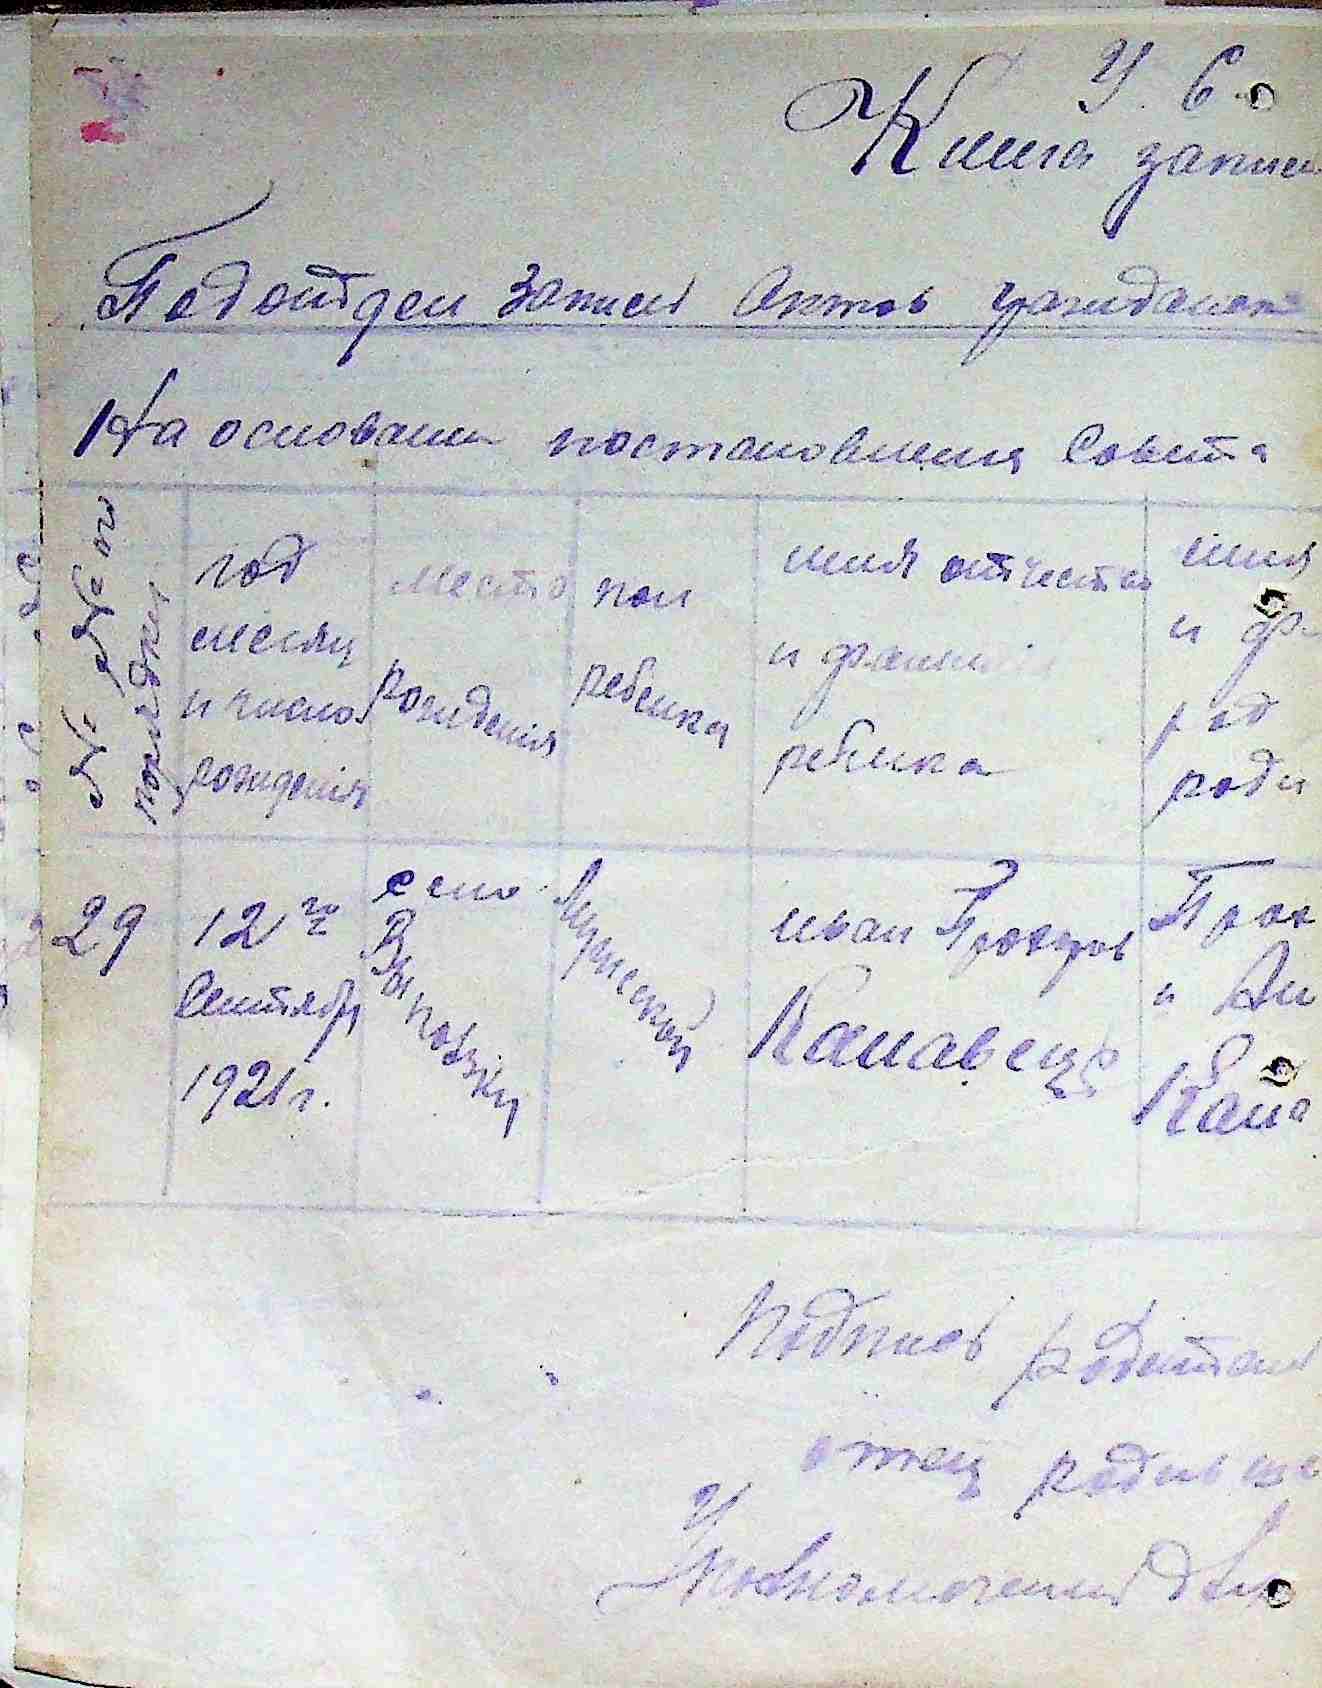 У. С.
Книга запис
Подотдел Записи Актов граждан
На основании постановления Совета
№ №№ по порядку
год месяц и число рождения
место рождения
пол ребенка
имя отчество и фамилия ребенка
имя и ф род роди
29
12го Сентября 1921 г.
село
Мужеской
иван Прохоров Канавецъ
Прох и Ан Кана
Подпись родител
отец
Уполномоченый